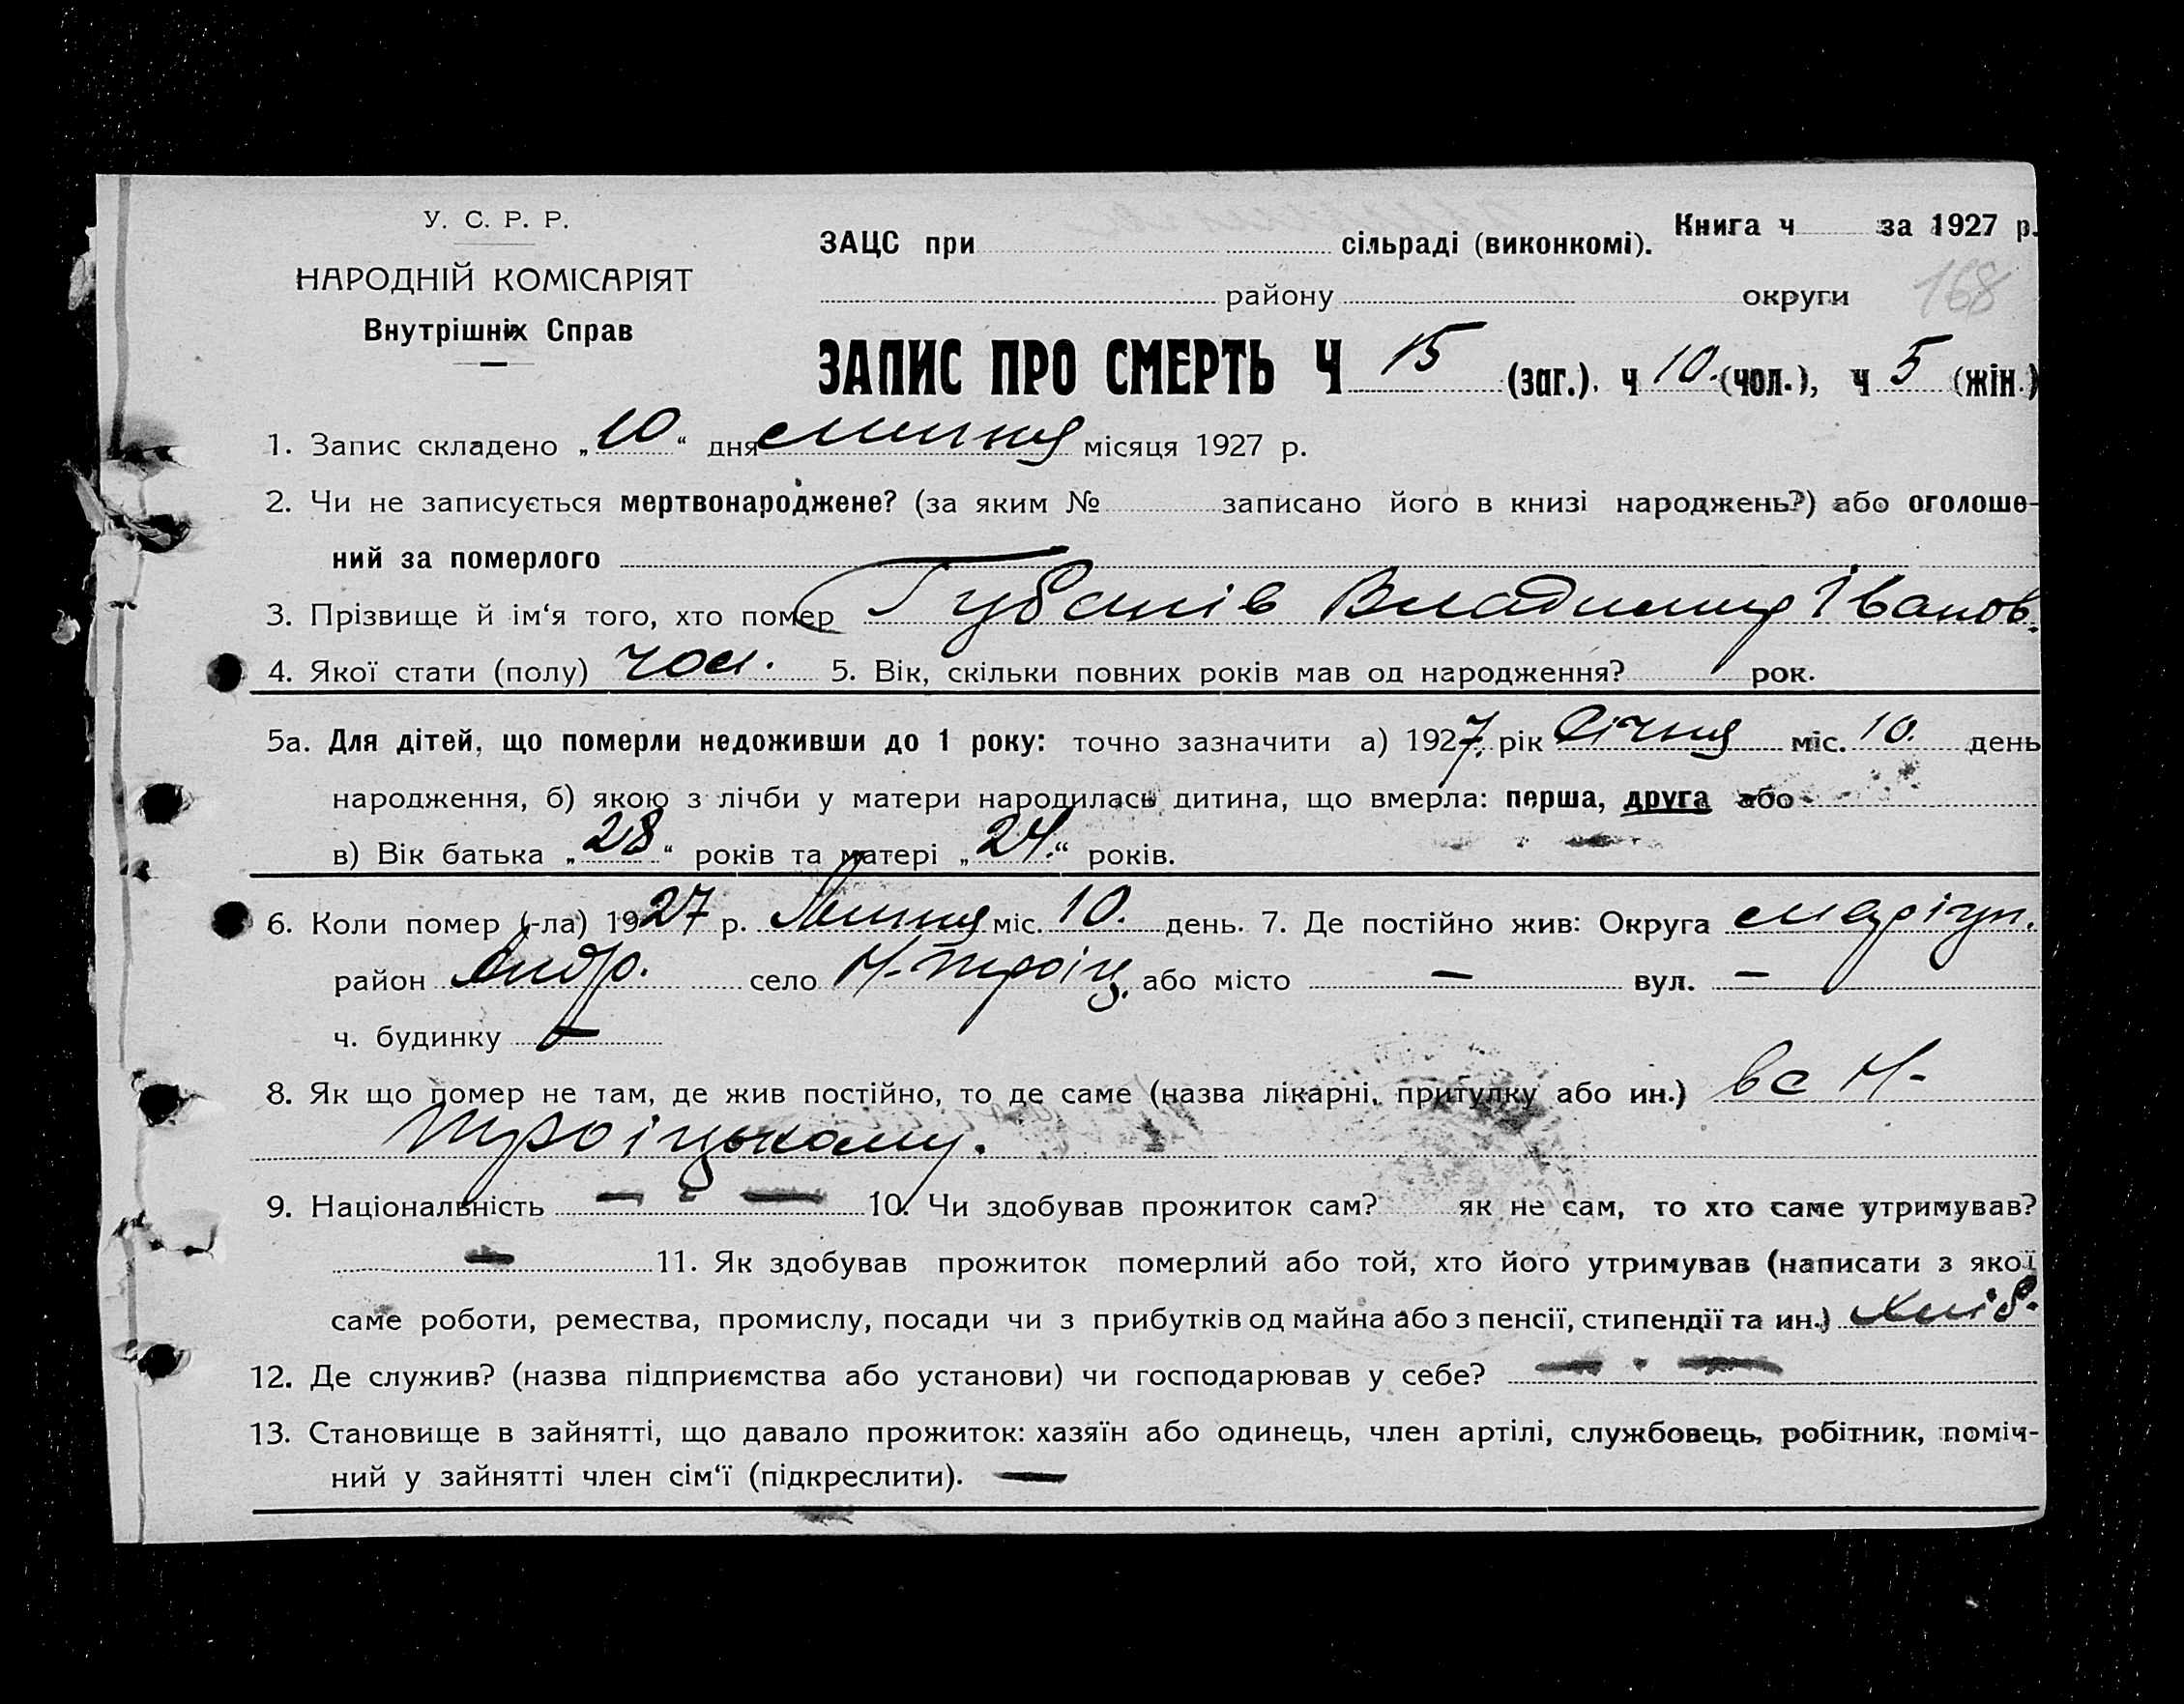 У. С. Р. Р.
НАРОДНІЙ КОМІСАРІЯТ
Внутрішніх Справ
Книга ч за 1927 р.
ЗАЦС при сільраді (виконкомі).
району округи 168
ЗАПИС ПРО СМЕРТЬ Ч 15 (заг.). ч 10. (чол.), ч 5 (жін.)
1. Запис складено „10“ дня липня місяця 1927 р.
2. Чи не записується мертвонароджене? (за яким № записано його в книзі народжень?) або оголоше-
ний за померлого
3. Прізвище й ім‘я того, хто помер Губанів Владимир Іванов.
4. Якої стати (полу) чол. 5. Вік, скільки повних років мав од народження? рок.
5а. Для дітей, що померли недоживши до 1 року: точно зазначити а) 1927. рік Січня міс. 10. день
народження, б) якою з лічби у матери народилась дитина, що вмерла: перша, друга або
в) Вік батька „28“ років та матері „24.“ років.
6. Коли помер (-ла) 1927 р. Липня міс. 10. день. 7. Де постійно жив: Округа маріуп.
район Андр. село Н-троіц. або місто — вул. —
ч. будинку —
8. Як що помер не там, де жив постійно, то де саме (назва лікарні, притулку або ин.) вс Н-
Троіцькому.
9. Національність — „ — 10. Чи здобував прожиток сам? як не сам, то хто саме утримував?
— 11. Як здобував прожиток померлий або той, хто його утримував (написати з якої
саме роботи, ремества, промислу, посади чи з прибутків од майна або з пенсії, стипендії та ин.) Хліб.
12. Де служив? (назва підприємства або установи) чи господарював у себе? — „ —
13. Становище в зайнятті, що давало прожиток: хазяїн або одинець, член артілі, службовець, робітник, поміч-
ний у зайнятті член сім‘ї (підкреслити). —